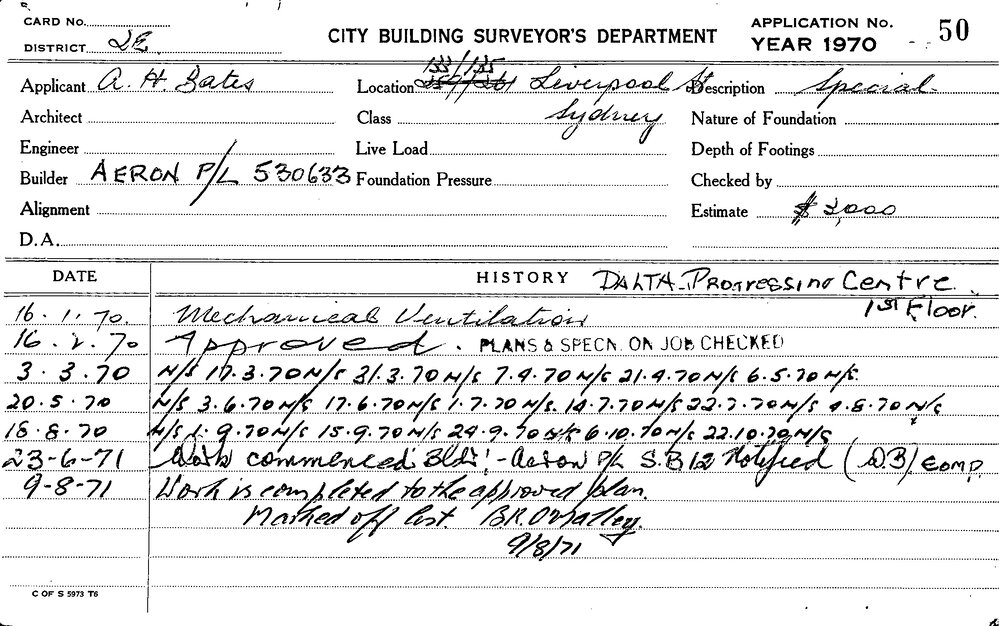 CARD No.
DISTRICT 2E
CITY BUILDING SURVEYOR'S DEPARTMENT
APPLICATION No. 50
YEAR 1970
133/135
Applicant A. H. Bates Location Liverpool St Description Special
Architect Class Sydney Nature of Foundation
Engineer Live Load Depth of Footings
Builder AERON P/L 530633 Foundation Pressure Checked by
Alignment Estimate $ 2,000
D.A.
DATE HISTORY DALTA PROGRESSING CENTRE
1ST FLOOR.
16.1.70. Mechanical Ventilation
16.2.70 Approved. PLANS & SPECN. ON JOB CHECKED
3.3.70 N/S 17.3.70 N/S 31.3.70 N/S 7.4.70 N/S 21.4.70 N/S 6.5.70 N/S.
20.5.70 N/S 3.6.70 N/S 17.6.70 N/S 1.7.70 N/S. 14.7.70 N/S 22.7.70 N/S 4.8.70 N/S
18.8.70 N/S 1.9.70 N/S 15.9.70 N/S 29.9.70 N/S 6.10.70 N/S 22.10.70 N/S
23-6-71 Work commenced Bldr - Aeron P/L S.B 12 Notified (DB) COMP
9-8-71 Work is completed to the approved plan.
Marked off list. B.R. O'Malley.
9/8/71
C OF S 5973 T6